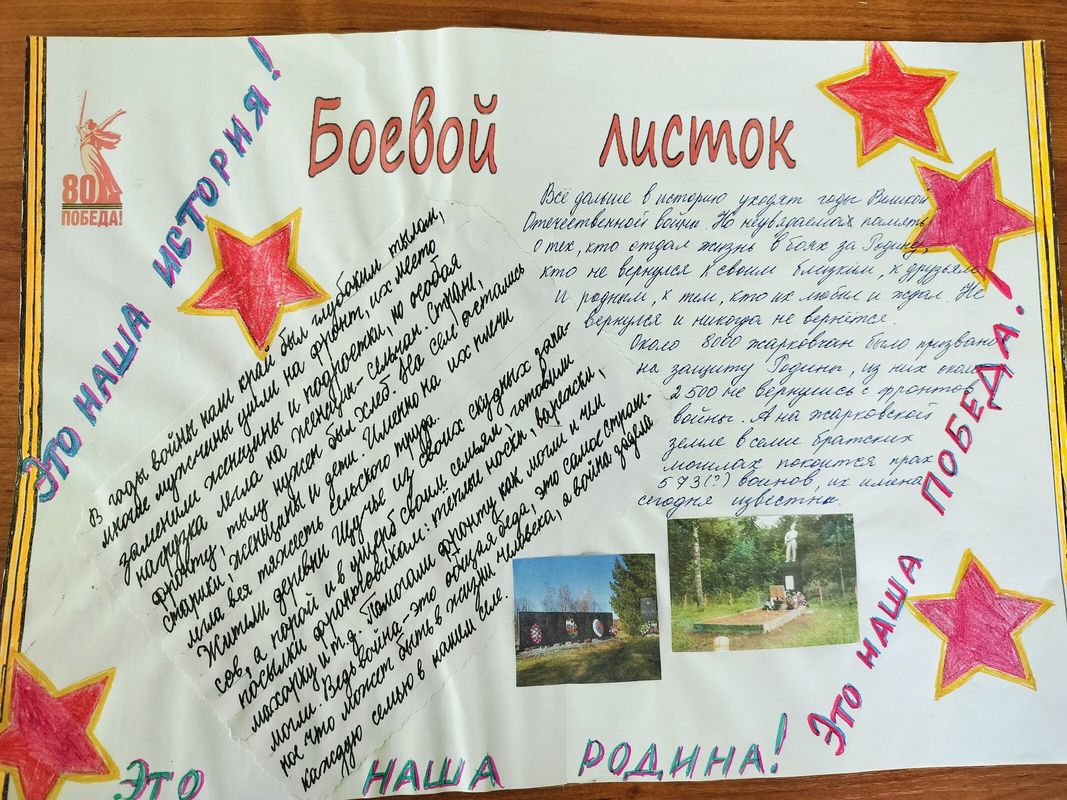 Боевой листок
80
ПОБЕДА!
ЭТО НАША ИСТОРИЯ!
В годы войны наш край был глубоким тылом,
многие мужчины ушли на фронт, их место
заменили женщины и подростки, но особая
нагрузка легла на женщин- сельчан. Стране,
фронту, тылу нужен был хлеб. На селе остались
старики, женщины и дети. Именно на их плечи
легла вся тяжесть сельского труда.
Жители деревни Щучье из своих скудных запа-
сов, а порой и в ущерб своим семьям, готовили
посылки фронтовикам: теплые носки, варежки,
махорку и т.д. Помогали фронту как могли и чем
могли. Ведь война-это общая беда, это самое страш-
ное что может быть в жизни человека, а война задела
каждую семью в нашем селе.
Всё дальше в историю уходят годы Великой
Отечественной войны. Но неувядаемая память
о тех, кто отдал жизнь в боях за Родину,
кто не вернулся к своим близким, к друзьям
и родным, к тем, кто их любил и ждал. Не
вернулся и никогда не вернётся.
Около 8000 жарковчан было призвано
на защиту Родины, из них около
2 500 не вернулись с фронтов
войны. А на жарковской
земле в семи братских
могилах покоится прах
573(?) воинов, их имена
сегодня известны.
ЭТО НАША ПОБЕДА!
ЭТО НАША РОДИНА!